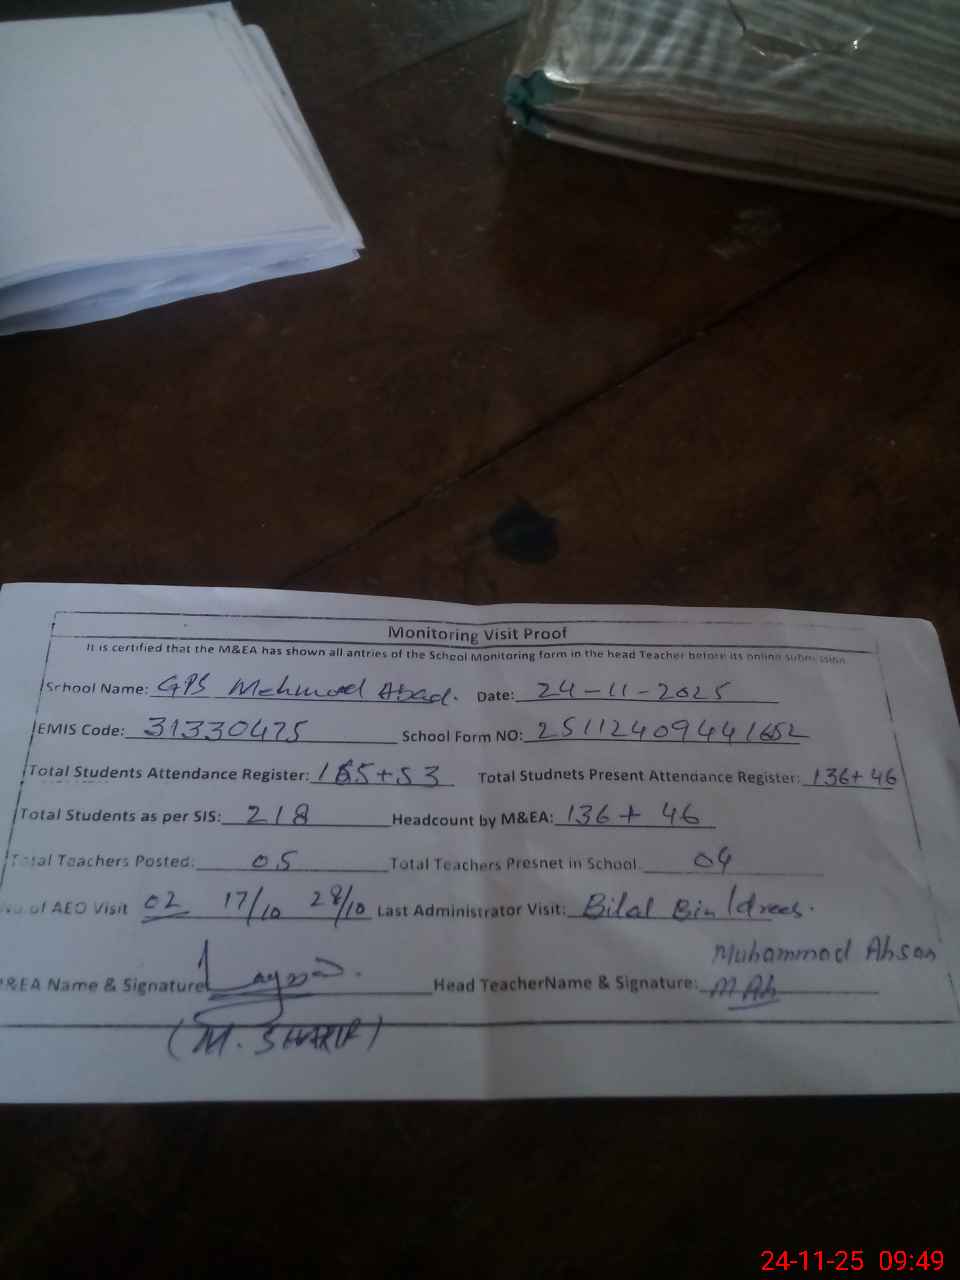 Monitoring Visit Proof
It is certified that the M&EA has shown all antries of the School Monitoring form in the head Teacher before its online submission
School Name: GPS Mehmood Abad. Date: 24-11-2025
EMIS Code: 31330475 School Form NO: 251124094441652
Total Students Attendance Register: 165+53 Total Studnets Present Attendance Register: 136+46
Total Students as per SIS: 218 Headcount by M&EA: 136 + 46
Total Teachers Posted: 05 Total Teachers Presnet in School. 04
No. of AEO Visit 02 17/10 28/10 Last Administrator Visit: Bilal Bin Idrees.
Muhammad Ahsan
M&EA Name & Signature Head TeacherName & Signature: M Ah
(M. SHARIF)
24-11-25 09:49